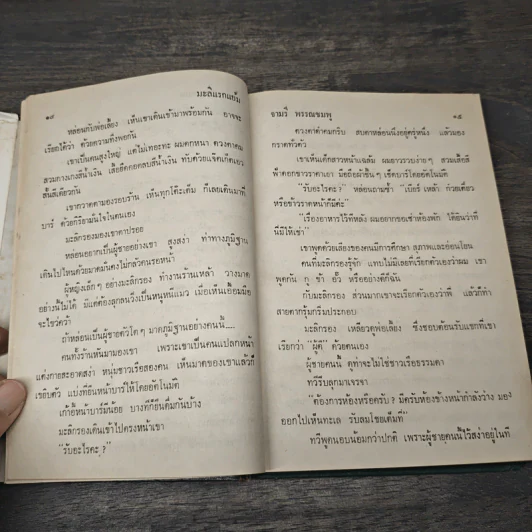 ๑๙ มะลิแรกแย้ม
หล่อนกับพ่อเลี้ยง เห็นเขาเดินเข้ามาพร้อมกัน อาจจะ
เรียกได้ว่า ด้วยความพึงพอกัน
เขาเป็นคนสูงใหญ่ แต่ไม่เทอะทะ ผมดกหนา ดวงตาคม
สวมกางเกงสีน้ำเงิน เสื้อยืดคอกลมสีน้ำเงิน ทับด้วยแจ๊คเก็ตแขน
สั้นสีเดียวกัน
เขากวาดตามองรอบร้าน เห็นทุกโต๊ะเต็ม ก็เลยเดินมาที่
บาร์ ด้วยกิริยามั่นใจในตนเอง
มะลิกรองมองเขาตาปรอย
หล่อนอยากเป็นผู้ชายอย่างเขา สูงสง่า ท่าทางภูมิฐาน
เดินไปไหนด้วยมาดมั่นคงไม่กลัวคนรอหน้า
ผู้หญิงเล็กๆ อย่างมะลิกรอง ทำงานร้านเหล้า วางมาด
อย่างนี้ไม่ได้ มีแต่ต้องลุกลนวิ่งเป็นหนูหนีแมว เมื่อเห็นเงื้อมมือ
จะไขว่คว้า
ถ้าหล่อนเป็นผู้ชายตัวโตๆ มาดภูมิฐานอย่างคนนี้.....
คนทั้งร้านหันมามองเขา เพราะเขาเป็นคนแปลกหน้า
แต่งกายสะอาดสง่า หนุ่มชาวเรือสองคน เห็นมาดของเขาแล้วก็
เขยบตัว แบ่งที่ยืนหน้าบาร์ให้โดยอัตโนมัติ
เก้าอี้หน้าบาร์มีน้อย บางทีก็ยืนดื่มกันบ้าง
มะลิกรองเดินเข้าไปตรงหน้าเขา
“รับอะไรคะ ?”
จามรี พรรณชมพู ๑๕
ดวงตาดำคมกริบ สบตาหล่อนนิ่งอยู่ครู่หนึ่ง แล้วมอง
กราดทั่วตัว
เขาเห็นเด็กสาวหน้าแฉล้ม ผมยาวรวบง่ายๆ สวมเสื้อสี
ฟ้าคอกขาวราคาเยา มือถือผ้าชื้นๆ เช็ดบาร์โดยอัตโนมัติ
“รับอะไรคะ ?” หล่อนถามซ้ำ “เบียร์ เหล้า ก๋วยเตี๋ยว
หรือข้าวราดหน้าก็มีค่ะ”
“เรื่องอาหารไว้ทีหลัง ผมอยากขอเช่าห้องพัก ได้ยินว่าที่
นี่มีให้เช่า”
เขาพูดด้วยเสียงของคนมีการศึกษา สุภาพและอ่อนโยน
คนที่มะลิกรองรู้จัก แทบไม่มีเลยที่เรียกตัวเองว่าผม เขา
พูดกัน กู ข้า อั๊ว หรืออย่างดีก็ฉัน
กับมะลิกรอง ส่วนมากเขาจะเรียกตัวเองว่าพี่ แล้วก็ทำ
สายตากรุ้มกริ่มประกอบ
มะลิกรอง เหลียวดูพ่อเลี้ยง ซึ่งชอบต้อนรับแขกที่เขา
เรียกว่า ผู้ดี ด้วยตนเอง
ผู้ชายคนนี้ ดูท่าจะไม่ใช่ชาวเรือธรรมดา
ทวีรีบลุกมาเจรจา
“ต้องการห้องหรือครับ ? มีครับห้องข้างหน้ากำลังว่าง มอง
ออกไปเห็นทะเล รับลมโชยเต็มที่”
ทวีพูดนอบน้อมกว่าปกติ เพราะผู้ชายคนนี้ไว้สง่าอยู่ในที